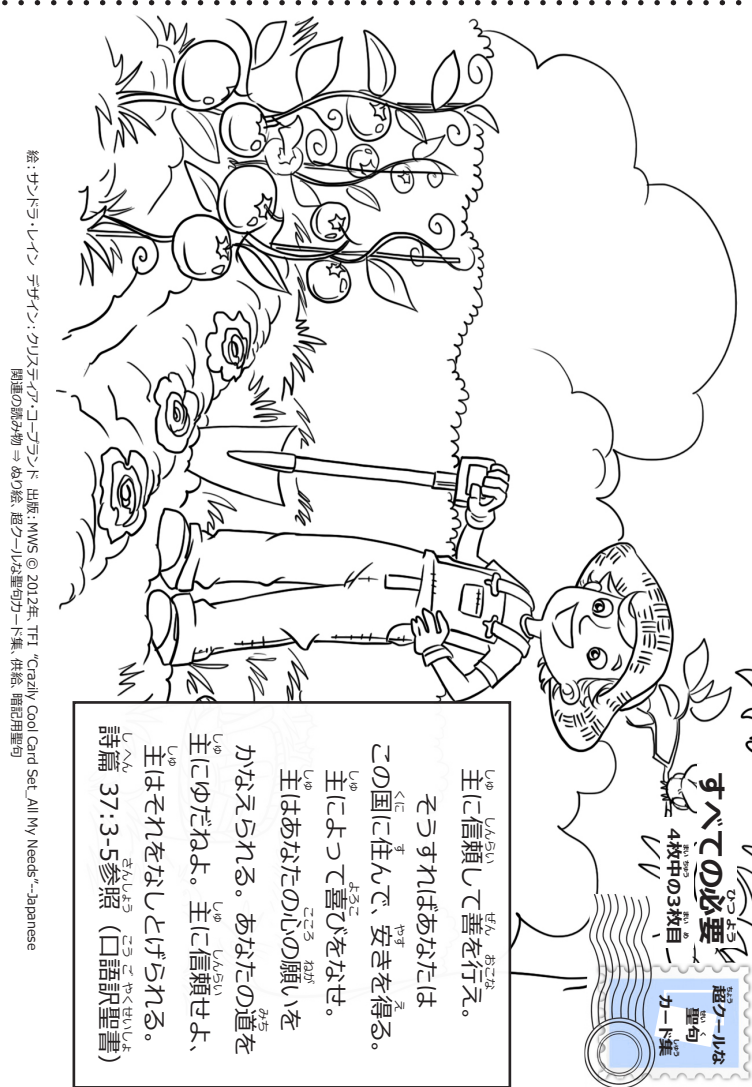 すべての必要
4枚中の3枚目
超クールな
聖句
カード集
主に信頼して善を行え。
そうすればあなたは
この国に住んで、安きを得る。
主によって喜びをなせ。
主はあなたの心の願いを
かなえられる。あなたの道を
主にゆだねよ。主に信頼せよ、
主はそれをなしとげられる。
詩篇 37:3-5参照 (口語訳聖書)
絵:サンドラ・レイン デザイン:クリスティア・コープランド 出版:MWS © 2012年、TFI “Crazily Cool Card Set_All My Needs”--Japanese
関連の読み物 ⇒ ぬり絵、超クールな聖句カード集、供給、暗記用聖句